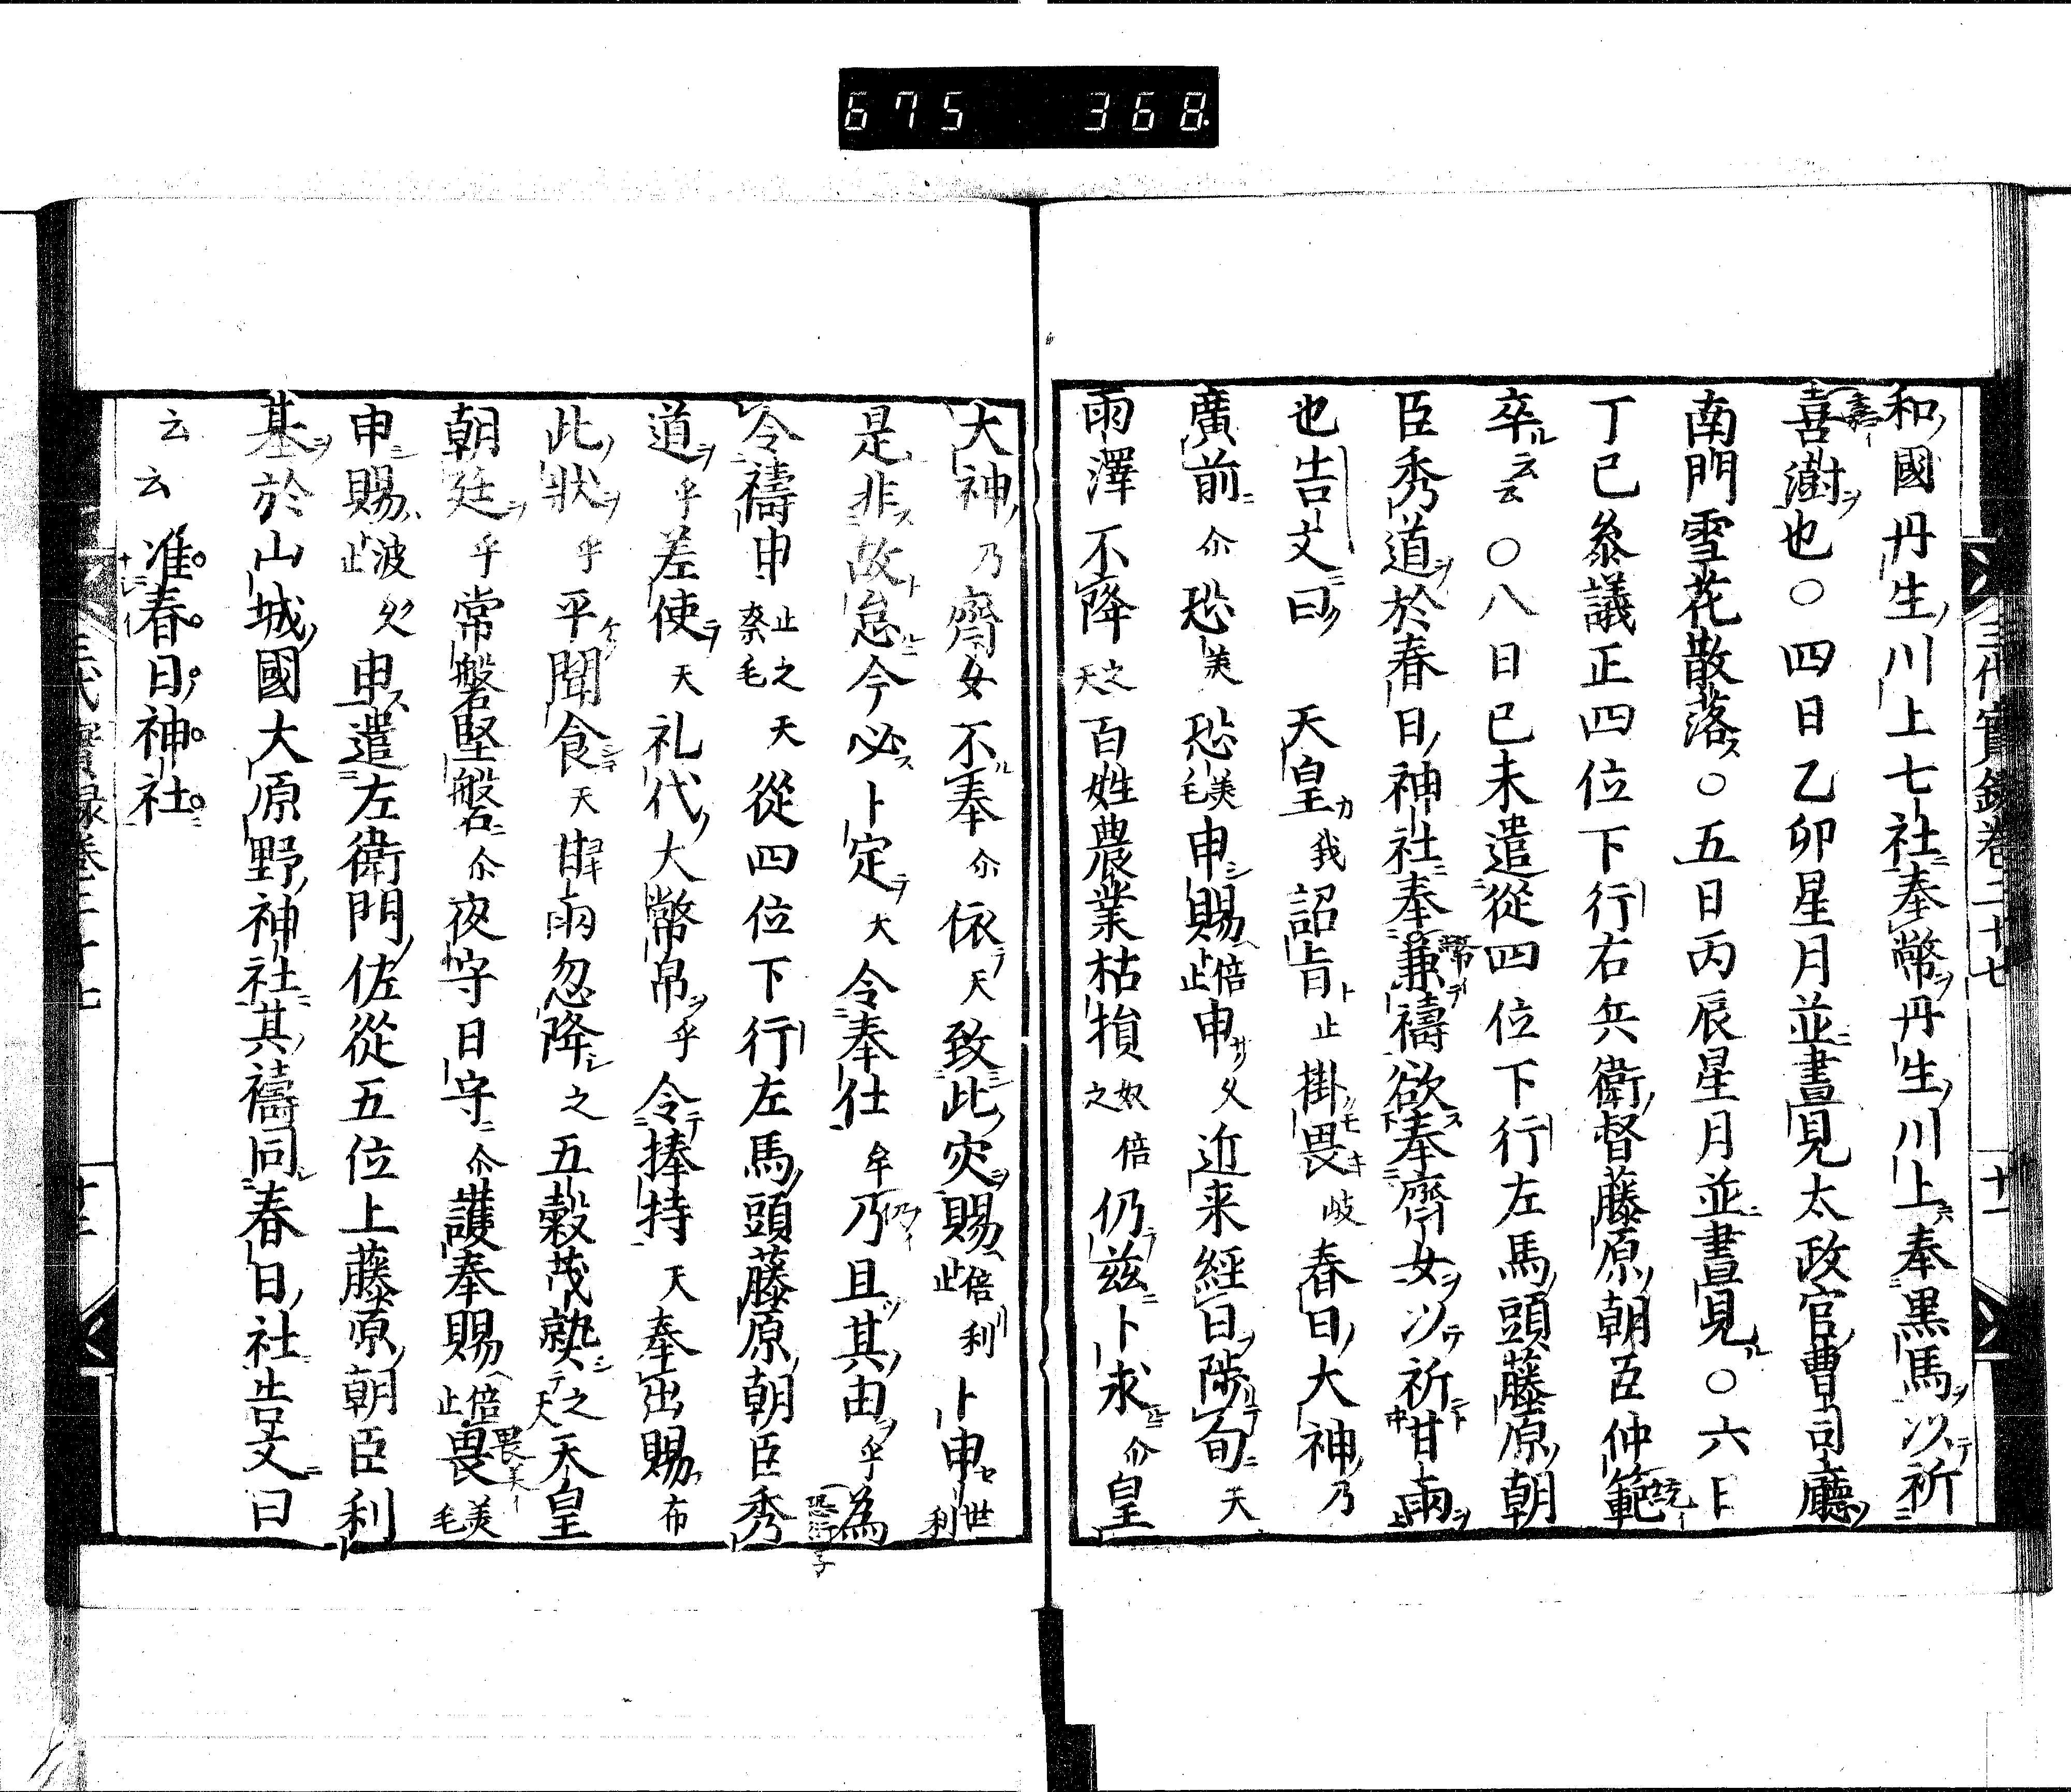 675 368
三代實錄卷二十七 十一
和國丹生川上七社奉幣丹生川上奉黒馬以祈
喜澍也○四日乙卯星月並晝見太政官曹司廳
南門雪花散落○五日丙辰星月並晝見○六日
丁巳叅議正四位下行右兵衛督藤原朝臣仲範
卒云云○八日己未遣從四位下行左馬頭藤原朝
臣秀道於春日神社奉兼禱欲奉齊女以祈甘雨
也告文曰 天皇我詔旨止掛畏歧春日大神乃
廣前尒恐美恐美毛申賜倍止申久近来經日陟旬天
雨澤不降之天百姓農業枯損奴之倍仍兹卜求尒皇
大神乃齊女不奉尒依天致此灾賜倍止利卜申世利
是非故怠今必卜定大令奉仕牟乃且其由乎為
令禱申止奈之毛天從四位下行左馬頭藤原朝臣秀
道乎差使天礼代大幣帛乎令捧持天奉出賜布
此狀乎平聞食天甘雨忽降之五穀茂熟之天天皇
朝廷乎常磐堅磐尒夜守日守尒護奉賜倍止畏美毛
申賜波止久申遣左衛門佐從五位上藤原朝臣利
基於山城國大原野神社其禱同春日社告文曰
云云准春日神社
三代實録卷二十七